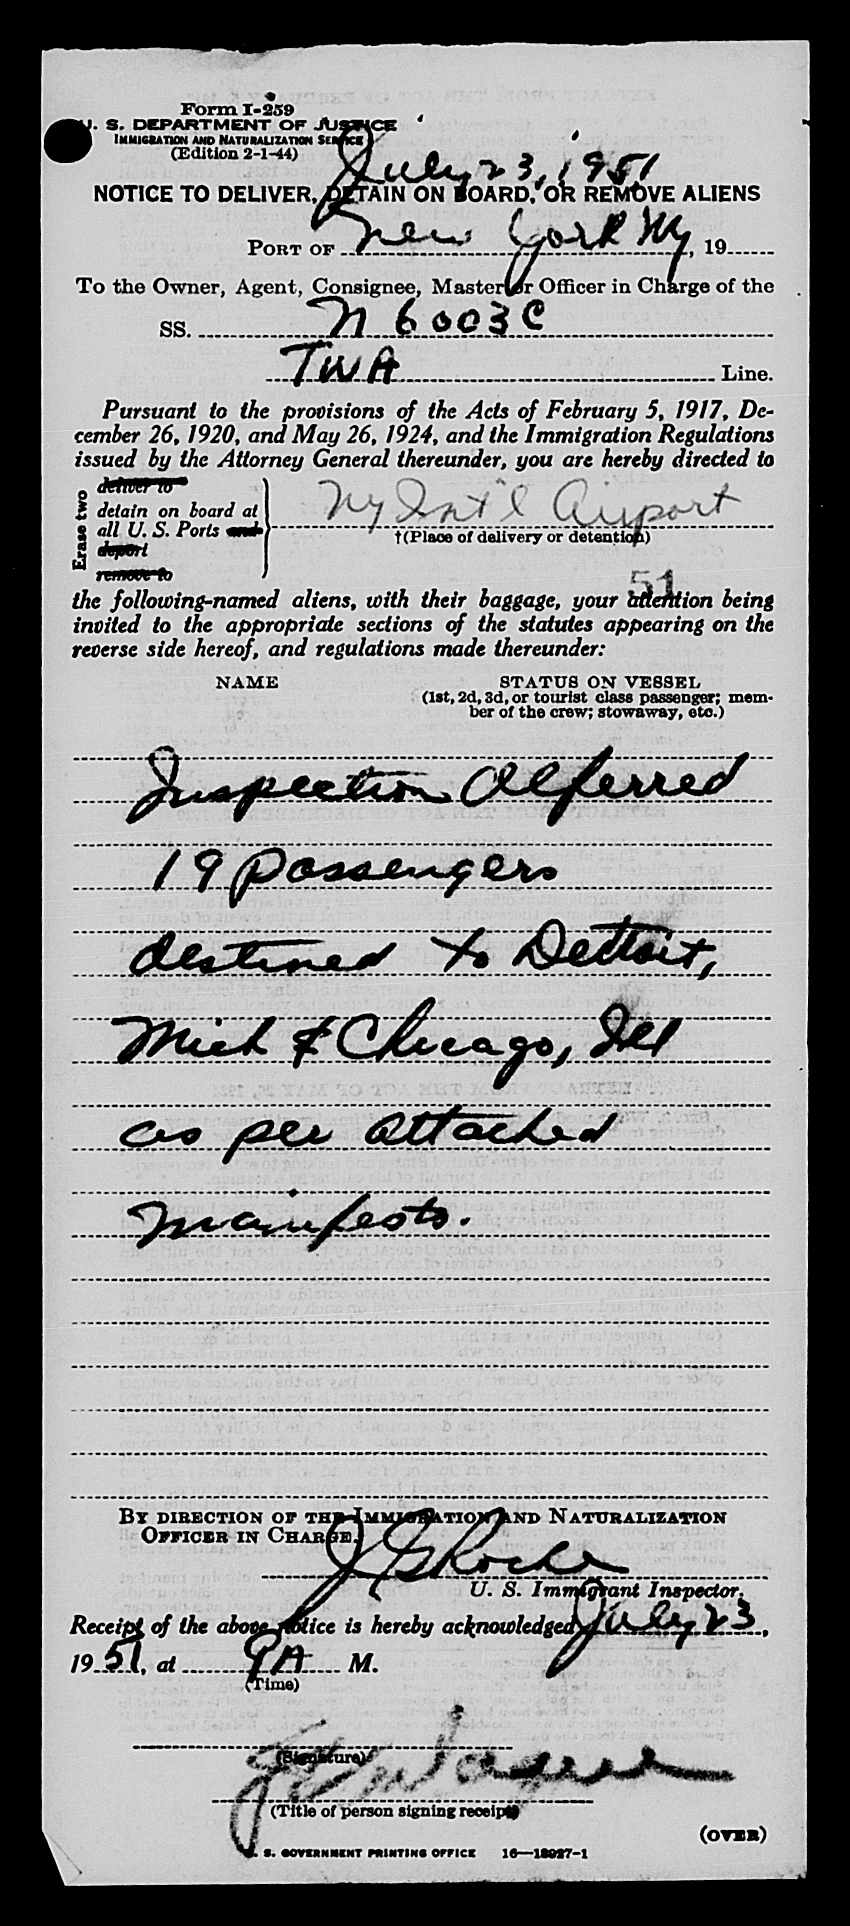 Form I-259
U. S. DEPARTMENT OF JUSTICE
IMMIGRATION AND NATURALIZATION SERVICE
(Edition 2-1-44)
July 23, 1951
NOTICE TO DELIVER, DETAIN ON BOARD, OR REMOVE ALIENS
PORT OF New York NY, 19
To the Owner, Agent, Consignee, Master or Officer in Charge of the
SS. N 6003C
TWA Line.
Pursuant to the provisions of the Acts of February 5, 1917, De-
cember 26, 1920, and May 26, 1924, and the Immigration Regulations
issued by the Attorney General thereunder, you are hereby directed to
Erase two
deliver to
detain on board at
all U. S. Ports and
deport
remove to
NY Int'l Airport
†(Place of delivery or detention)
51
the following-named aliens, with their baggage, your attention being
invited to the appropriate sections of the statutes appearing on the
reverse side hereof, and regulations made thereunder:
NAME STATUS ON VESSEL
(1st, 2d, 3d, or tourist class passenger; mem-
ber of the crew; stowaway, etc.)
Inspection deferred
19 passengers
destined to Detroit,
Mich & Chicago, Ill
as per attached
manifests.
BY DIRECTION OF THE IMMIGRATION AND NATURALIZATION
OFFICER IN CHARGE.
J G Roche
U. S. Immigrant Inspector.
Receipt of the above notice is hereby acknowledged July 23,
1951, at 9A M.
(Time)
(Signature)
(Title of person signing receipt)
(OVER)
U. S. GOVERNMENT PRINTING OFFICE 16—13927-1